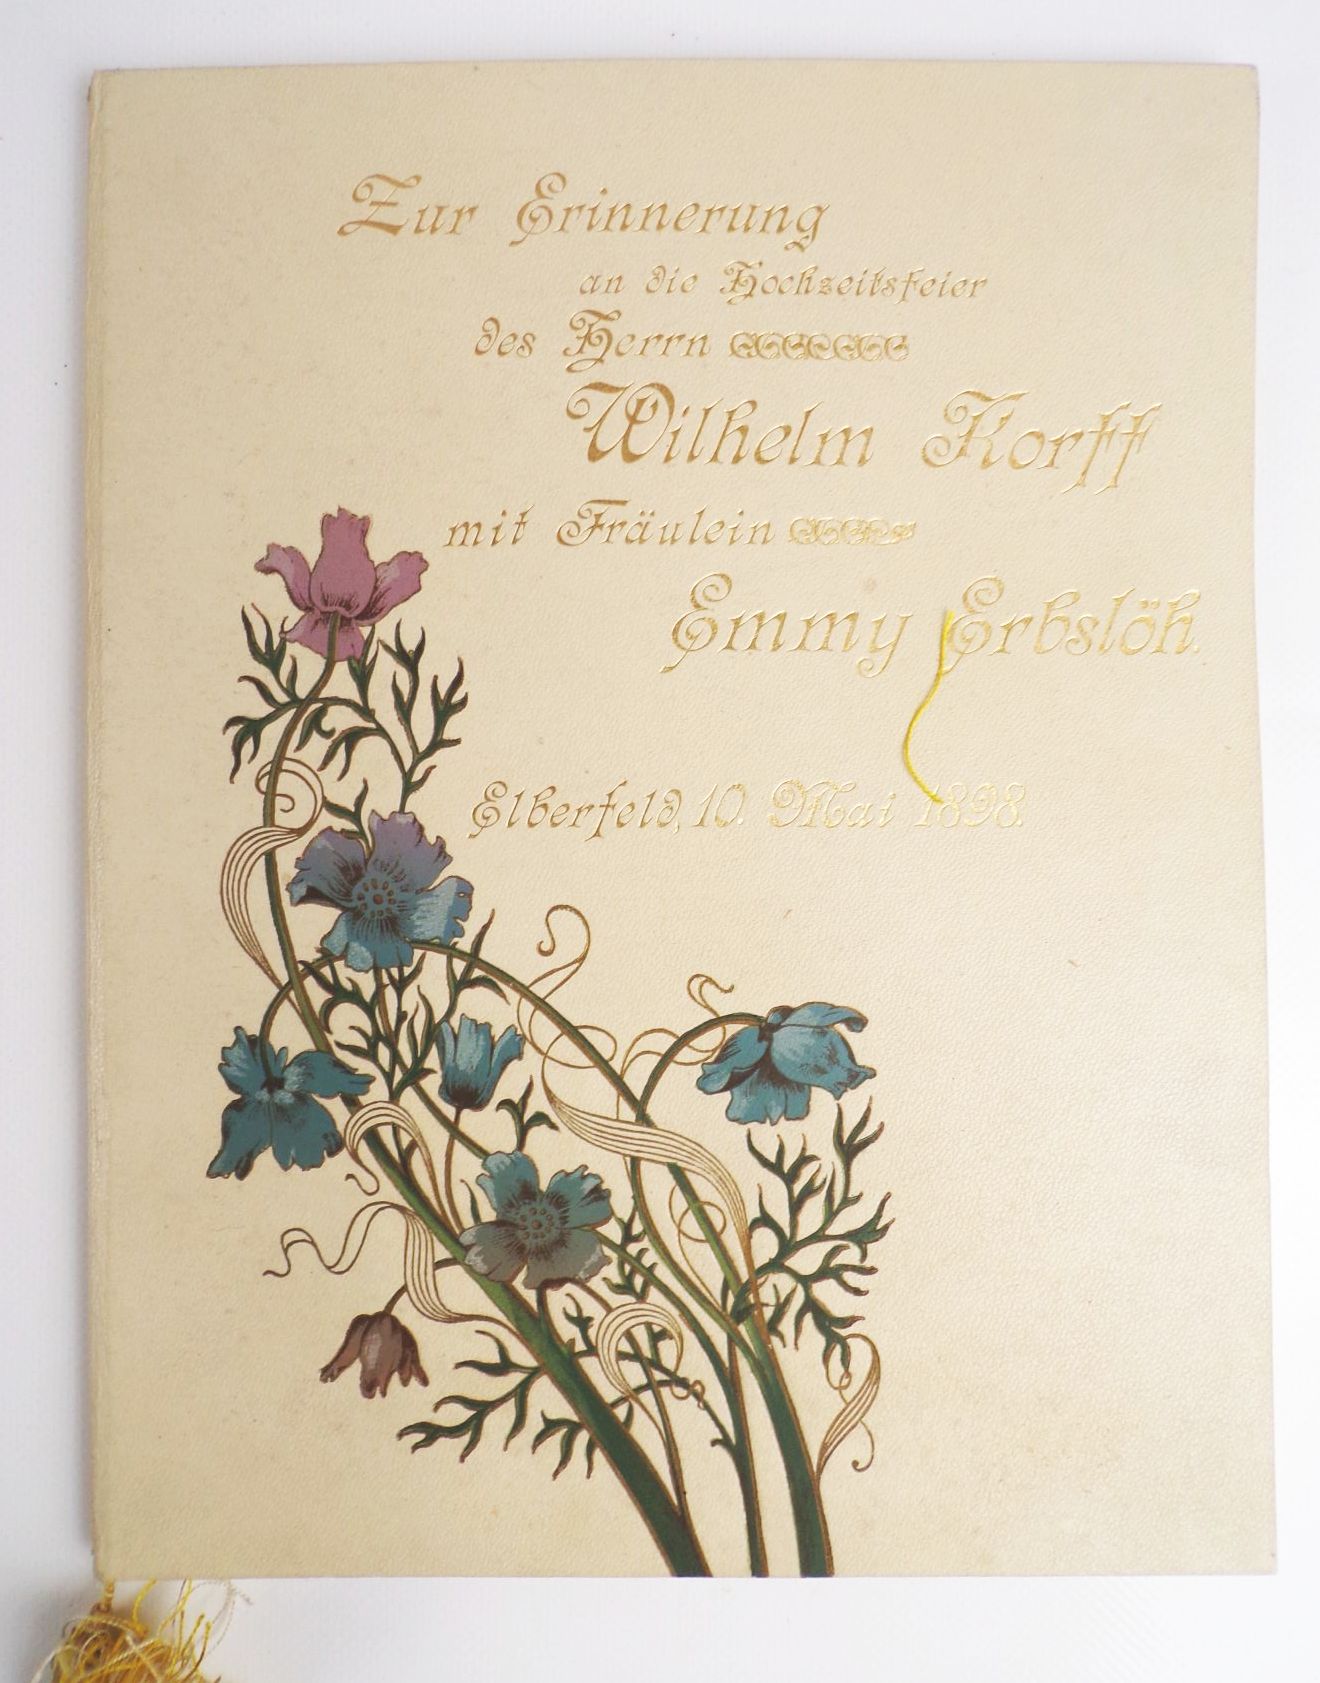 Zur Erinnerung
an die Hochzeitsfeier
des Herrn
Wilhelm Korff
mit Fräulein
Emmy Erbslöh.
Elberfeld, 10. Mai 1898.